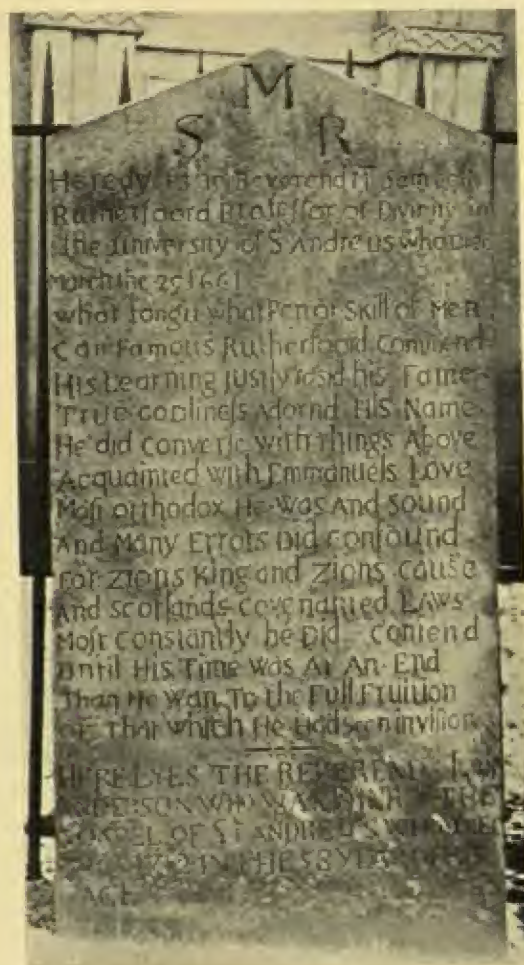 M
S R
Here Lyes the Reverend Mr Samuell
Rutherfoord Professor of Divinity in
the University of St Andreus who Died
March the 29 1661
what tongu what Pen or Skill of Men
Can Famous Rutherfoord Commend
His Learning justly raisd his Fame
True Godliness Adornd His Name
He did converse with things Above
Acquainted with Emmanuels Love
Most orthodox He Was And Sound
And Many Errors Did confound
For Zions King and Zions cause
And Scotlands covenanted LAWs
Most constantly he Did Contend
Until His Time Was At An End
Than He Wan To the Full Fruition
of That which He Had seen in vision
HERE LYES THE REVEREND
ANDERSON WHO WAS THE
GOSPEL OF St ANDREUS WHO
IN THE 58 YEAR
AGE